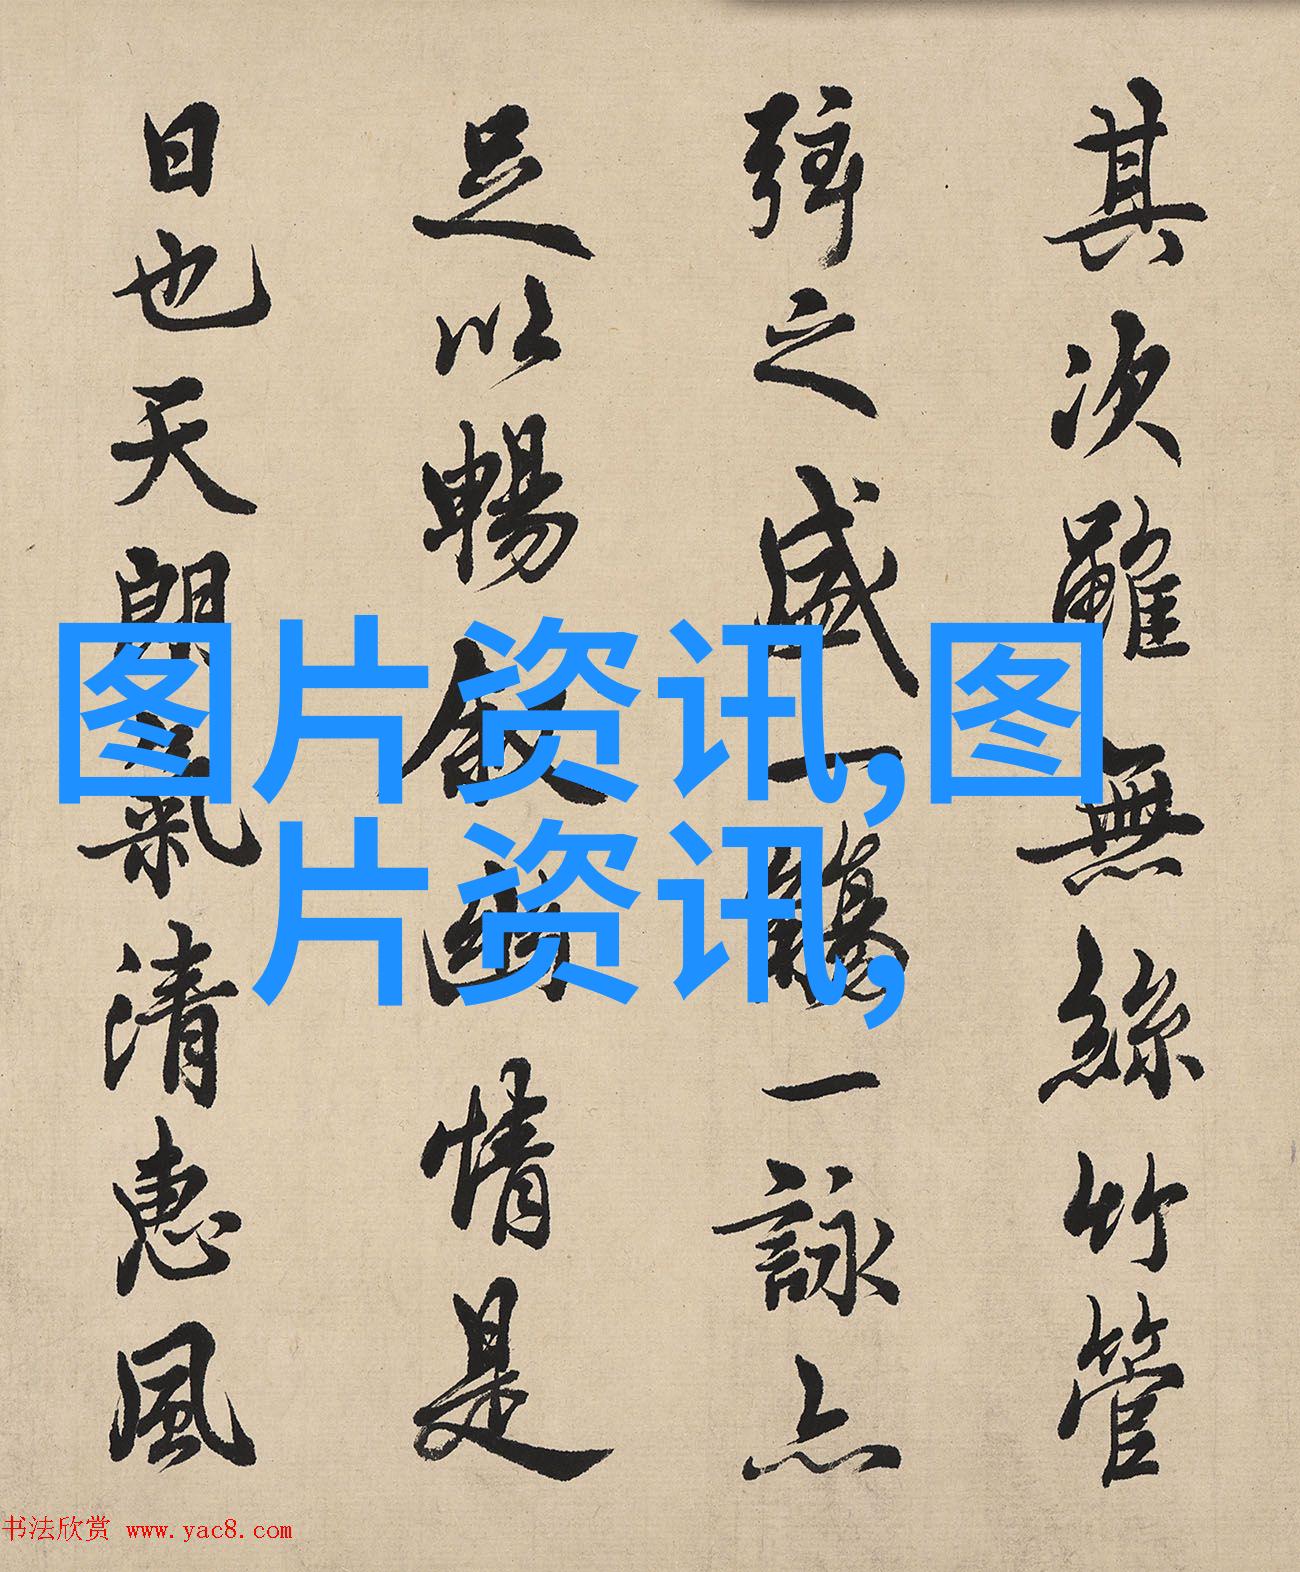 其次雖無絲竹管
弦之盛一觴一詠亦
足以暢敘幽情是
日也天朗氣清惠風
图片资讯,图
片资讯,
书法欣赏 www.yac8.com